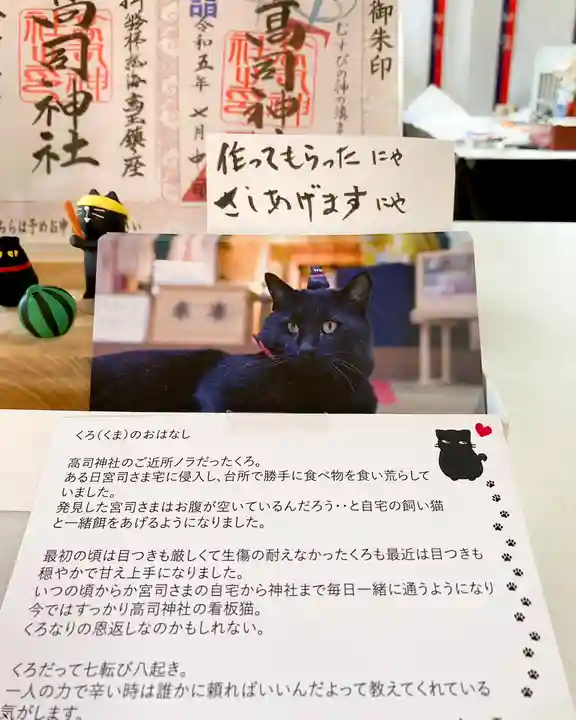 御朱印
むすびの神の鎮まる
高司神社
令和五年七月中
高司神社
鎮座
作ってもらったにゃ
さしあげますにゃ
奉斎
くろ(くま)のおはなし
高司神社のご近所ノラだったくろ。
ある日宮司さま宅に侵入し、台所で勝手に食べ物を食い荒らして
いました。
発見した宮司さまはお腹が空いているんだろう・・と自宅の飼い猫
と一緒餌をあげるようになりました。
最初の頃は目つきも厳しくて生傷の耐えなかったくろも最近は目つきも
穏やかで甘え上手になりました。
いつの頃からか宮司さまの自宅から神社まで毎日一緒に通うようになり
今ではすっかり高司神社の看板猫。
くろなりの恩返しなのかもしれない。
くろだって七転び八起き。
一人の力で辛い時は誰かに頼ればいいんだよって教えてくれている
気がします。